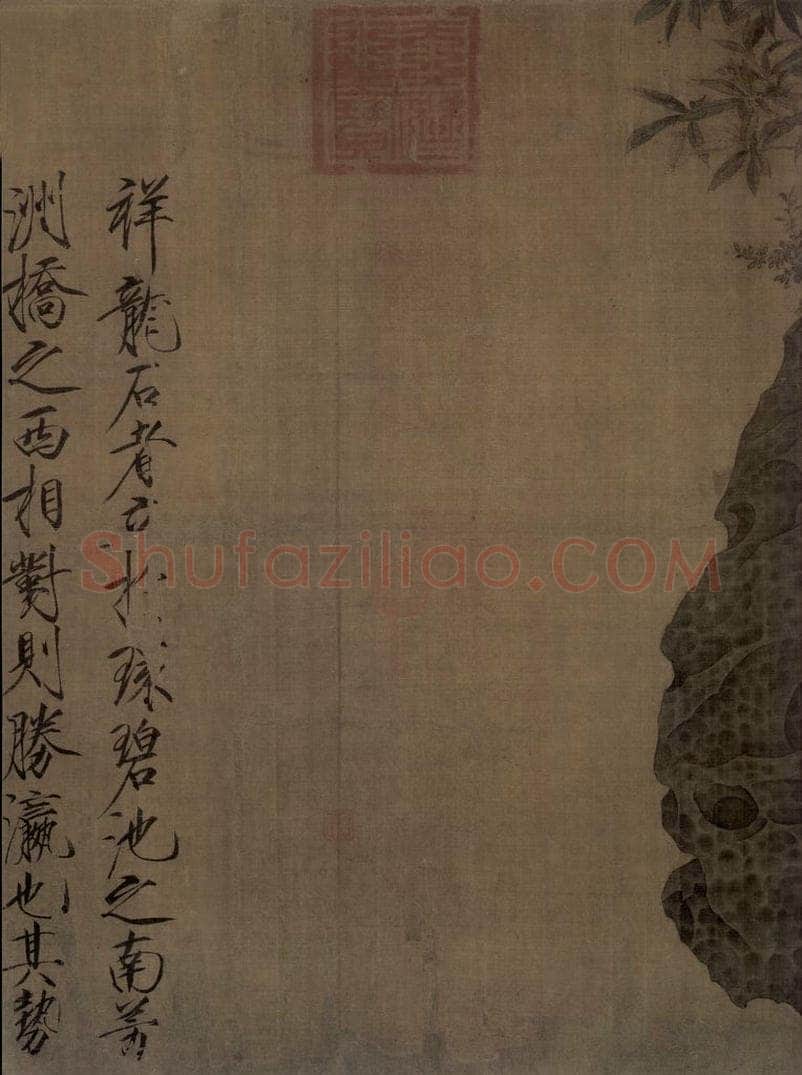 祥龍石者立於環碧池之南芳
洲橋之西相對則勝瀛也其勢
Shufaziliao.COM